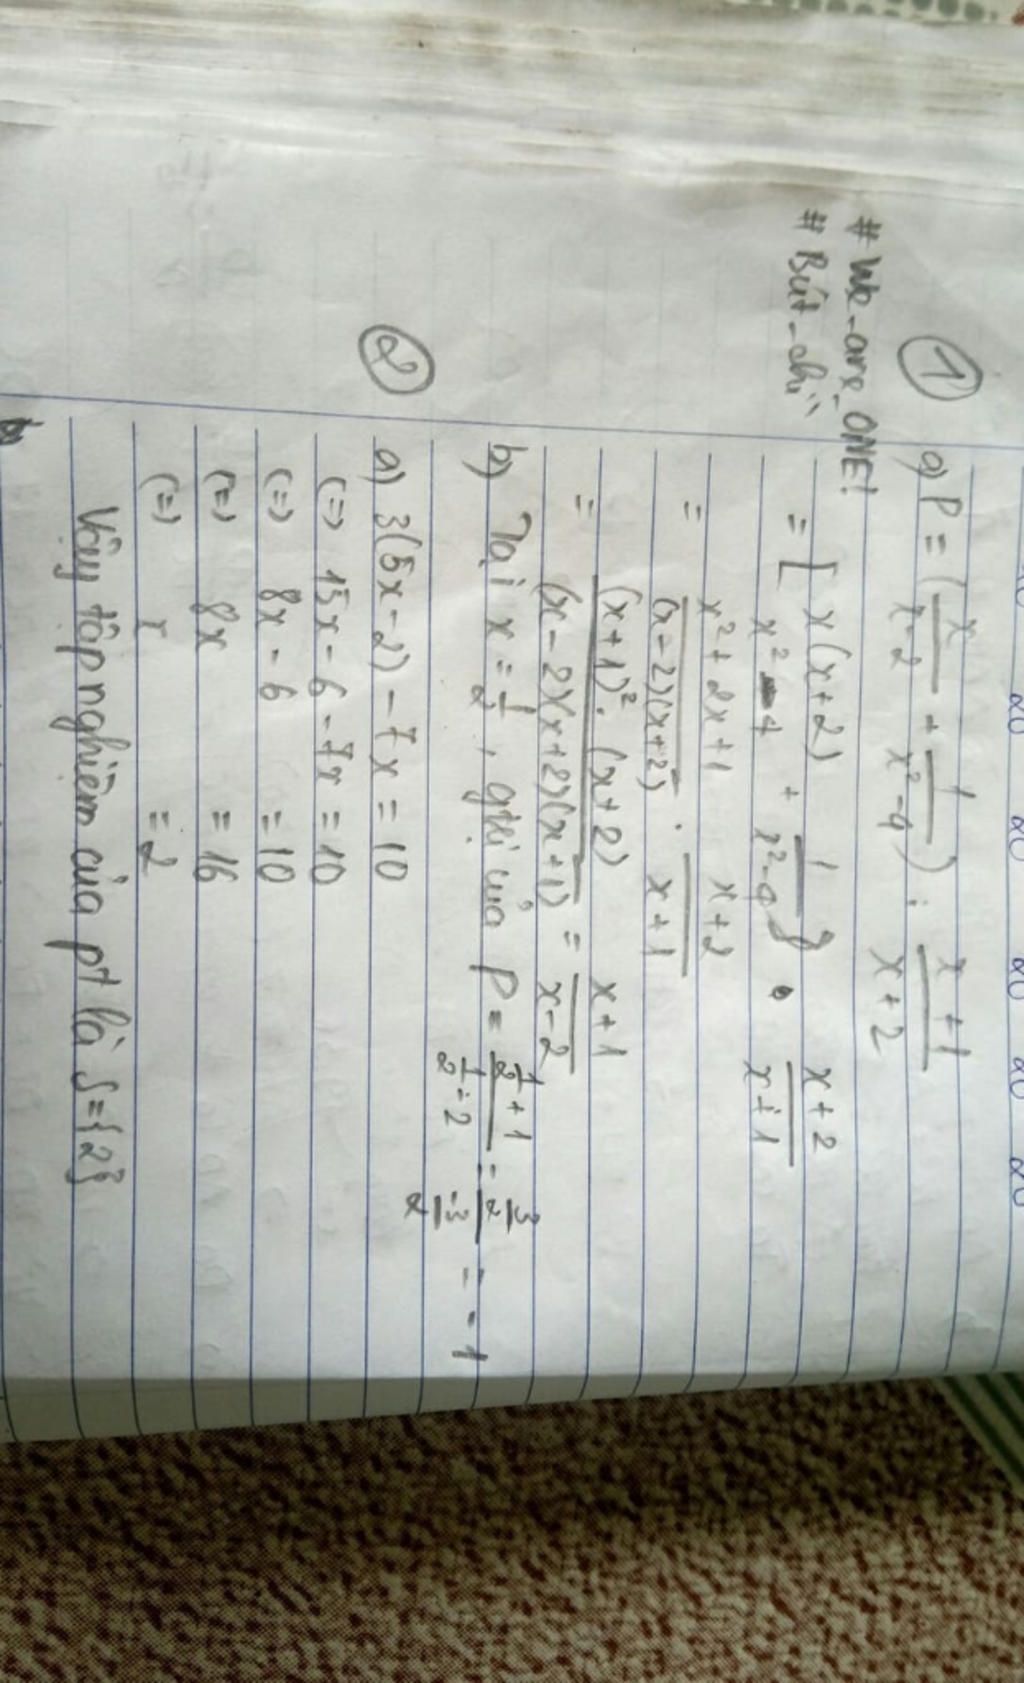 20 20 20 20
# We-are-ONE!
# Bút-chì
① a) P = (x/x-2 + 1/x²-4) : x+1/x+2
= [x(x+2)/x²-4 + 1/x²-4] · x+2/x+1
= x²+2x+1/(x-2)(x+2) · x+2/x+1
= (x+1)².(x+2)/(x-2)(x+2)(x+1) = x+1/x-2
b) Tại x = 1/2, gtrị của P = 1/2+1/1/2-2 = 3/2/-3/2 = -1
② a) 3(5x-2) - 7x = 10
(=) 15x - 6 - 7x = 10
(=) 8x - 6 = 10
(=) 8x = 16
(=) x = 2
Vậy tập nghiệm của pt là S={2}